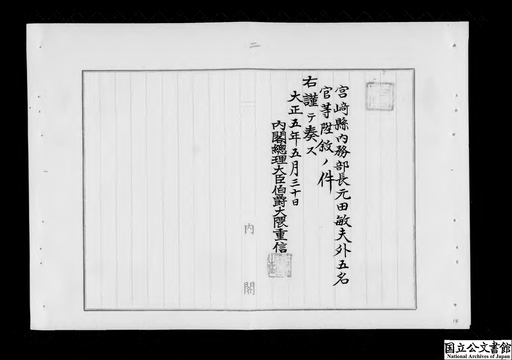 二
宮崎縣內務部長元田敏夫外五名
官等陞敍ノ件
右謹テ奏ス
大正五年五月三十日
內閣總理大臣伯爵大隈重信
內閣
国立公文書館
National Archives of Japan